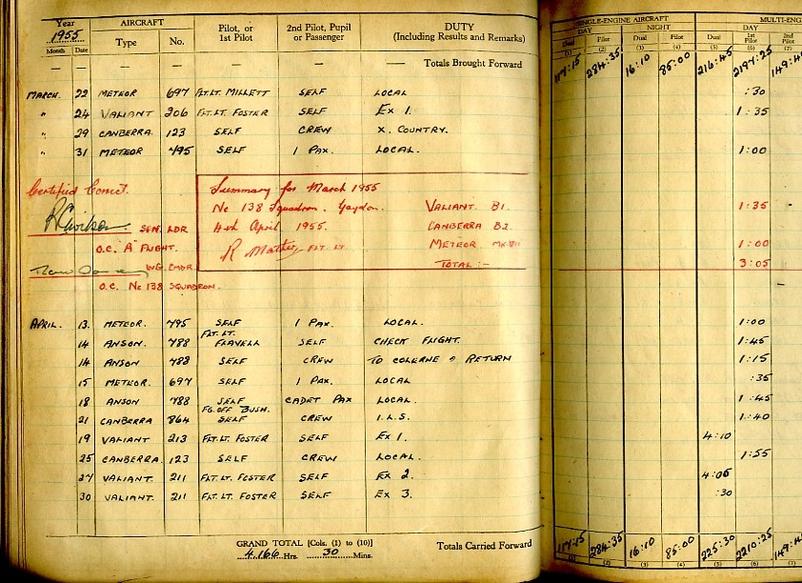 Year AIRCRAFT Pilot, or 2nd Pilot, Pupil DUTY
1955 1st Pilot or Passenger (Including Results and Remarks)
Month Date Type No.
— — — — — — — Totals Brought Forward
MARCH. 22 METEOR 697 FLT.LT. MILLETT SELF LOCAL
" 24 VALIANT 206 FLT.LT. FOSTER SELF EX 1.
" 29 CANBERRA 123 SELF CREW X. COUNTRY.
" 31 METEOR 495 SELF 1 PAX. LOCAL.
Certified Correct.
SQN. LDR
O.C. "A" FLIGHT.
WG. CMDR.
O.C. No 138 SQUADRON.
Summary for March 1955
No 138 Squadron. Gaydon. VALIANT. B1.
4th April 1955. CANBERRA B2.
R Mather FLT. LT. METEOR
TOTAL:-
APRIL. 13. METEOR. 495 SELF 1 PAX. LOCAL.
14 ANSON. 788 FLT.LT. FLAVELL SELF CHECK FLIGHT.
14 ANSON 788 SELF CREW TO COLERNE & RETURN
15 METEOR. 697 SELF 1 PAX. LOCAL
18 ANSON 788 SELF CADET PAX LOCAL.
FG. OFF BUSH.
21 CANBERRA 864 SELF CREW I.L.S.
19 VALIANT 213 FLT.LT. FOSTER SELF EX 1.
25 CANBERRA. 123 SELF CREW LOCAL.
27 VALIANT. 211 FLT. LT. FOSTER SELF EX 2.
30 VALIANT. 211 FLT. LT. FOSTER SELF EX 3.
GRAND TOTAL [Cols. (1) to (10)] Totals Carried Forward
4,166 Hrs. 30 Mins.
SINGLE-ENGINE AIRCRAFT MULTI-EN
DAY NIGHT DAY
Dual Pilot Dual Pilot Dual 1st Pilot 2nd Pilot
(1) (2) (3) (4) (5) (6) (7)
117:15 284:35 16:10 85:00 216:45 2197:25 149:4
:30
1:35
1:00
1:35
1:00
3:05
1:00
1:45
1:15
:35
1:45
1:40
4:10
1:55
4:05
:30
117:15 284:35 16:10 85:00 225:30 2210:25 149:4
(1) (2) (3) (4) (5) (6) (7)